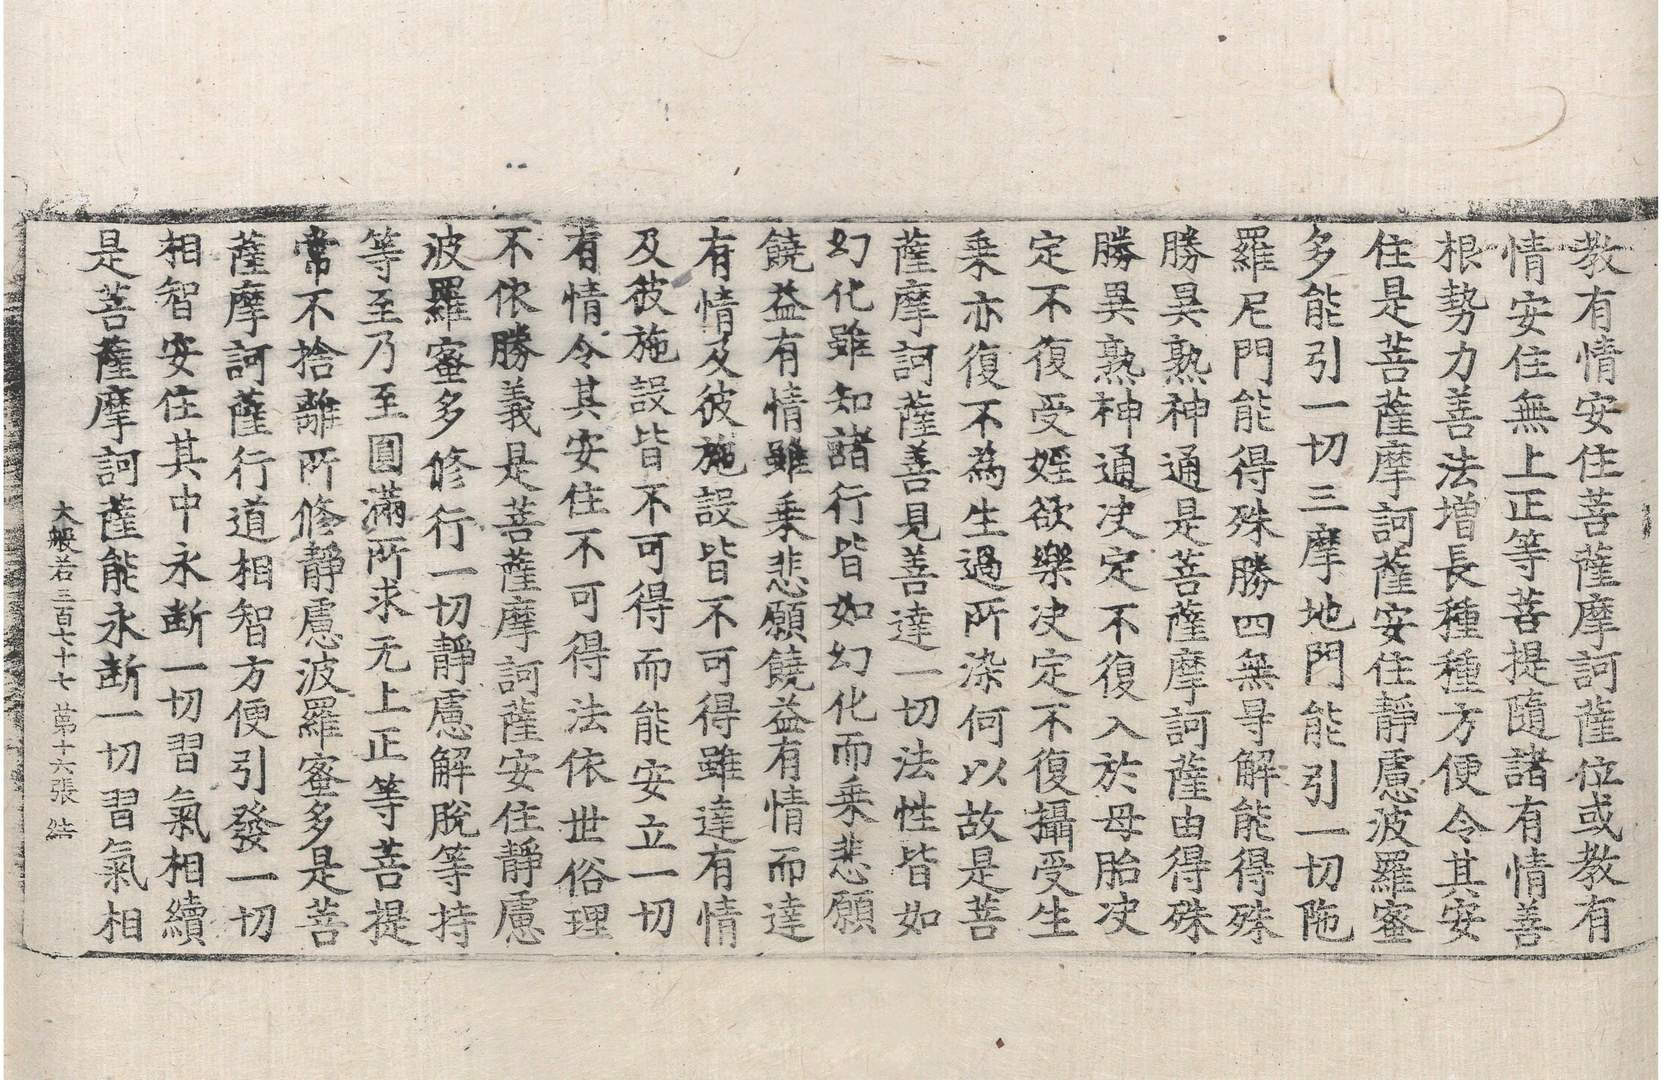 教有情安住菩薩摩訶薩位或教有
情安住無上正等菩提隨諸有情善
根勢力善法增長種種方便令其安
住是菩薩摩訶薩安住靜慮波羅蜜
多能引一切三摩地門能引一切陁
羅尼門能得殊勝四無㝵解能得殊
勝異熟神通是菩薩摩訶薩由得殊
勝異熟神通决定不復入於母胎决
定不復受婬欲樂决定不復攝受生
乘亦復不為生過所染何以故是菩
薩摩訶薩善見善達一切法性皆如
幻化雖知諸行皆如幻化而乘悲願
饒益有情雖乘悲願饒益有情而達
有情及彼施設皆不可得雖達有情
及彼施設皆不可得而能安立一切
有情令其安住不可得法依世俗理
不依勝義是菩薩摩訶薩安住靜慮
波羅蜜多修行一切靜慮解脫等持
等至乃至圓滿所求无上正等菩提
常不捨離所修靜慮波羅蜜多是菩
薩摩訶薩行道相智方便引發一切
相智安住其中永斷一切習氣相續
是菩薩摩訶薩能永斷一切習氣相
大般若三百七十七 第十六張